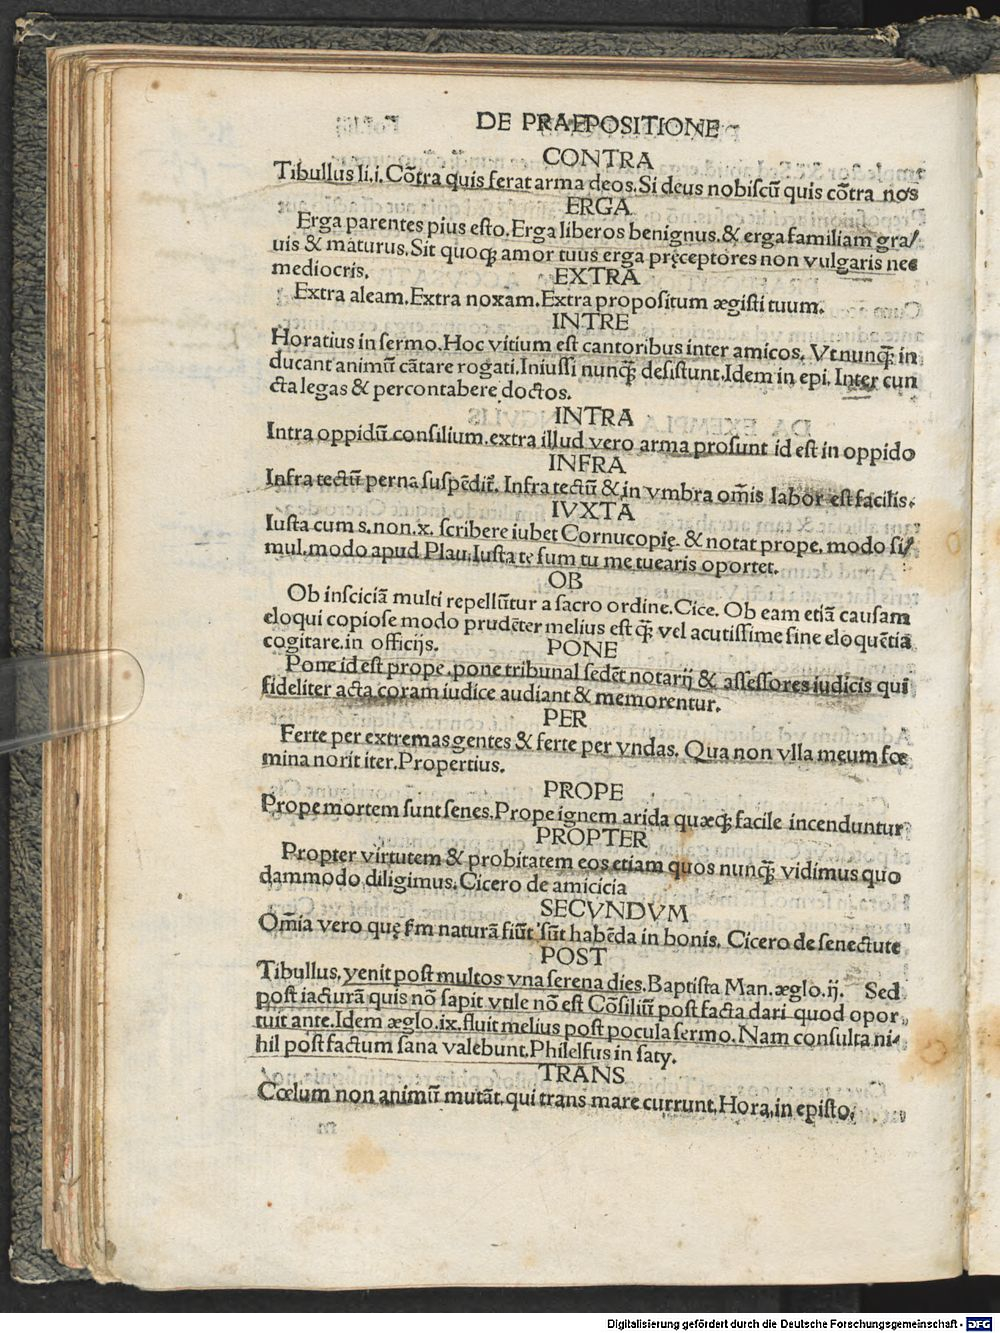 DE PRAEPOSITIONE
CONTRA
Tibullus li.i. Cõtra quis ferat arma deos. Si deus nobiscũ quis cõtra nos
ERGA
Erga parentes pius esto. Erga liberos benignus. & erga familiam gra/
uis & maturus. Sit quoqꝫ amor tuus erga pręceptores non vulgaris nec
mediocris.
EXTRA
Extra aleam. Extra noxam. Extra propositum ægisti tuum.
INTRE
Horatius in sermo. Hoc vitium est cantoribus inter amicos. Vt nunqꝫ̃ in
ducant animũ cãtare rogati. Iniussi nunqꝫ̃ desistunt. Idem in epi. Inter cun
cta legas & percontabere doctos.
INTRA
Intra oppidũ consilium. extra illud vero arma prosunt id est in oppido
INFRA
Infra tectũ perna suspẽdit̃. Infra tectũ & in vmbra om̃is labor est facilis.
IVXTA
Iusta cum s. non. x. scribere iubet Cornucopię. & notat prope. modo si/
mul. modo apud Plau. Iusta te sum tu me tuearis oportet.
OB
Ob insciciã multi repellũtur a sacro ordine. Cice. Ob eam etiã causam
eloqui copiose modo prudẽter melius est qꝫ̃ vel acutissime sine eloquẽtia
cogitare. in officijs.
PONE
Pone id est prope. pone tribunal sedẽt notarij & assessores iudicis qui
fideliter acta coram iudice audiant & memorentur.
PER
Ferte per extremas gentes & ferte per vndas. Qua non vlla meum fœ
mina norit iter. Propertius.
PROPE
Prope mortem sunt senes. Prope ignem arida quæqꝫ facile incenduntur
PROPTER
Propter virtutem & probitatem eos etiam quos nunqꝫ̃ vidimus quo
dammodo diligimus. Cicero de amicicia
SECVNDVM
Om̃ia vero quę ẜm naturã fiũt sũt habẽda in bonis. Cicero de senectute
POST
Tibullus, venit post multos vna serena dies. Baptista Man. æglo. ij. Sed
post iacturã quis nõ sapit vtile nõ est Cõsiliũ post facta dari quod opor
tuit ante. Idem æglo. ix. fluit melius post pocula sermo. Nam consulta ni-
hil post factum sana valebunt. Philelfus in saty.
TRANS
Cœlum non animũ mutãt qui trans mare currunt. Hora. in episto.
Digitalisierung gefördert durch die Deutsche Forschungsgemeinschaft - DFG